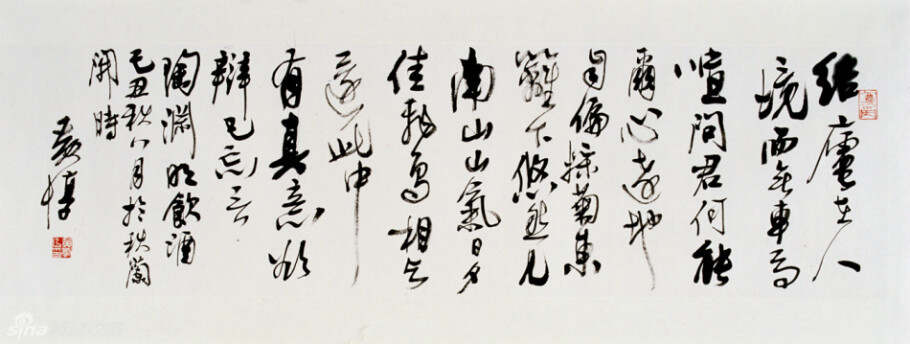 结廬在人
境而無車馬
喧问君何能
爾心遠地
自偏採菊東
籬下悠然见
南山山氣日夕
佳飛鸟相与
還此中
有真意欲
辯已忘言
陶渊明飲酒
己丑秋八月於秋蘭
開時
黄惇
sina